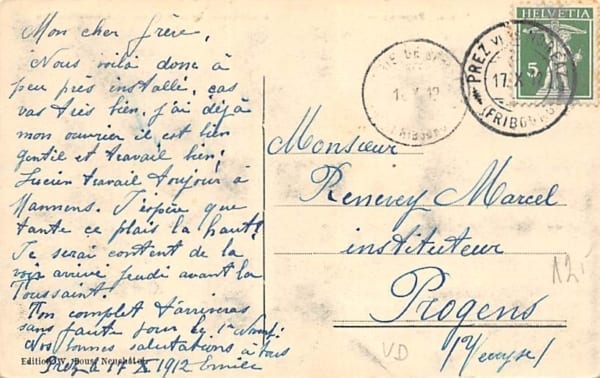 Mon cher frère,
Nous voilà donc à
peu près installé, ças
vas très bien, j'ai déjà
mon ouvrier il est bien
gentil et travail bien!
Lucien travail toujour à
Mannens. J'espère que
tante ce plais la haut!
Je serai content de la
voir arrivé jeudi avant la
Toussaint.
Ton complet t'arriveras
sans faute pour le 1er
Nos bonnes salutations à tous
Prez à 17 X 1912 Emile
Edition W. Neuchâtel
HELVETIA
5
PREZ
17. X. 12
(FRIBOURG)
12
Monsieur
Renevey Marcel
instituteur
Progens
(Veveyse)
12
VD